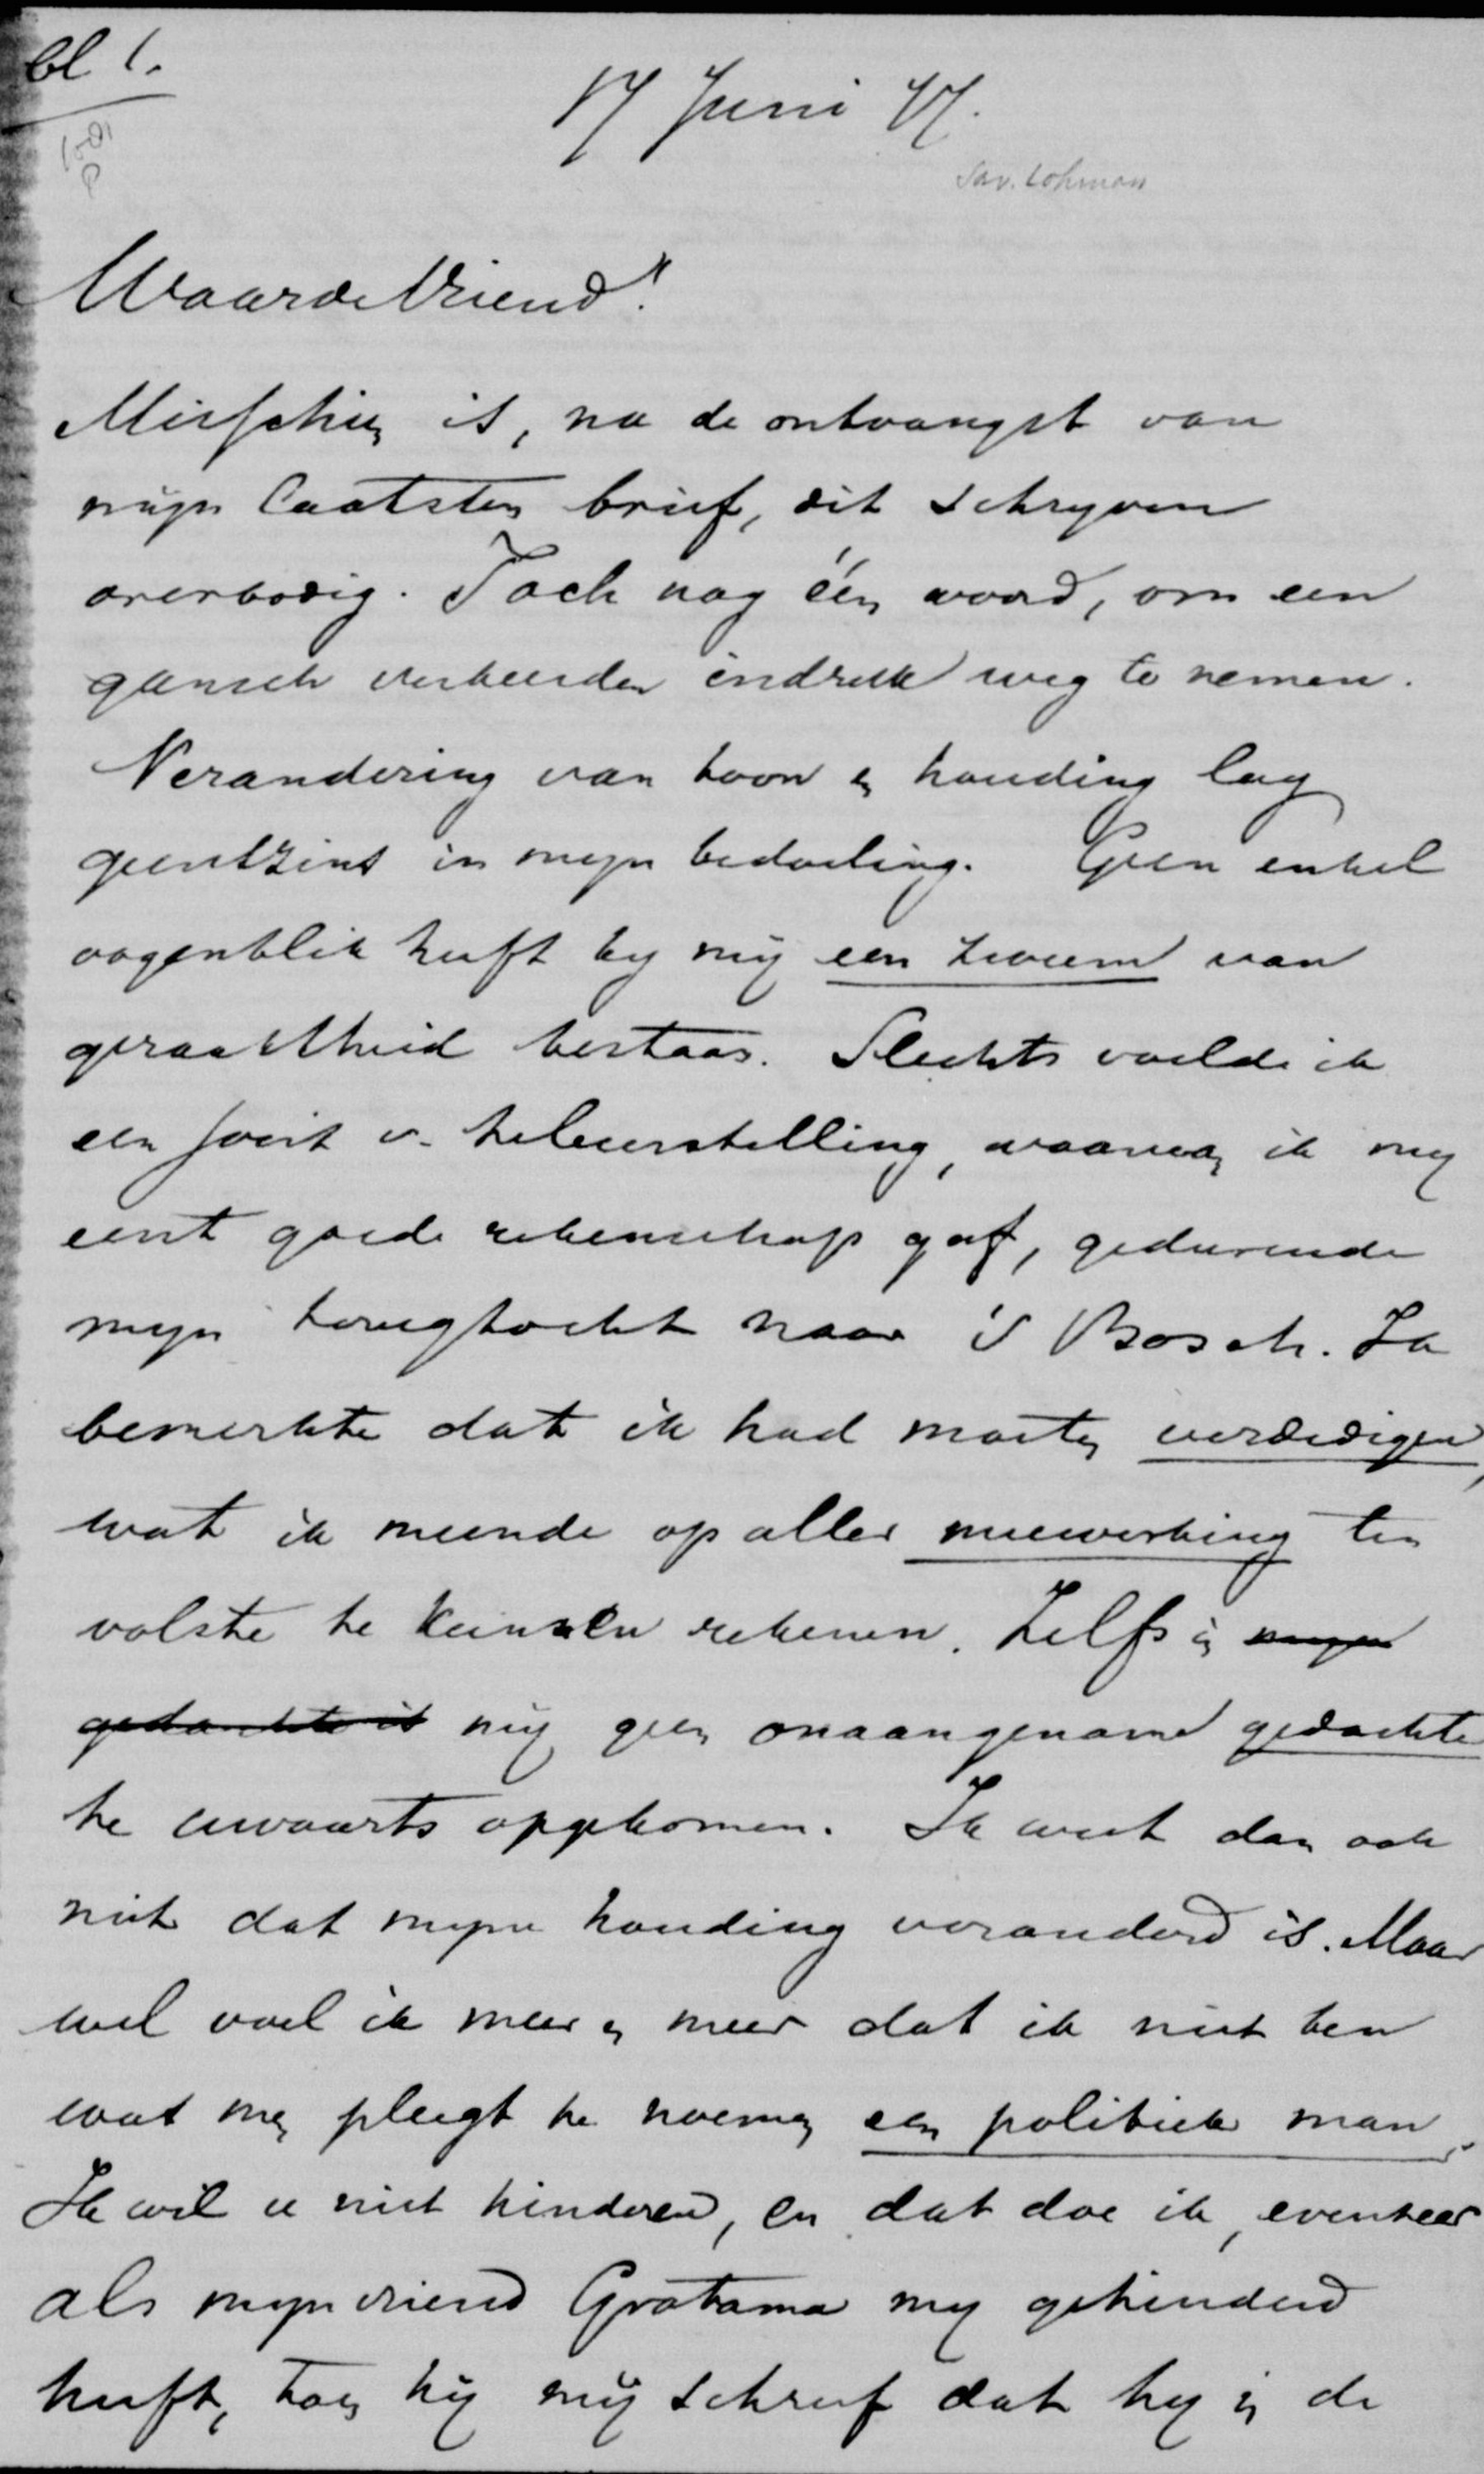 bl 1.
17 Juni 77.
Sav. Lohman
Waarde Vriend!
Misschien is, na de ontvangst van
mijn laatsten brief, dit schrijven
overbodig. Toch nog één woord, om een
gansch verkeerden indruk weg te nemen.
Verandering van toon en houding lag
geenszins in mijn bedoeling. Geen enkel
oogenblik heeft bij mij een zweem van
geraaktheid bestaan. Slechts voelde ik
een soort v. teleurstelling, waarvan ik mij
eerst goede rekenschap gaf, gedurende
mijn terugtocht naar 's Bosch. Ik
bemerkte dat ik had moeten verdedigen,
wat ik meende op aller meewerking ten
volste te kunnen rekenen. Zelfs is mijn
gedachte is mij geen onaangename gedachte
te uwaarts opgekomen. Ik weet dan ook
niet dat mijne houding veranderd is. Maar
wel voel ik meer en meer dat ik niet ben
wat men pleegt te noemen een politiek man.
Ik wil u niet hinderen, en dat doe ik, evenzeer
als mijn vriend Gratama mij gehinderd
heeft, toen hij mij schreef dat hij in de